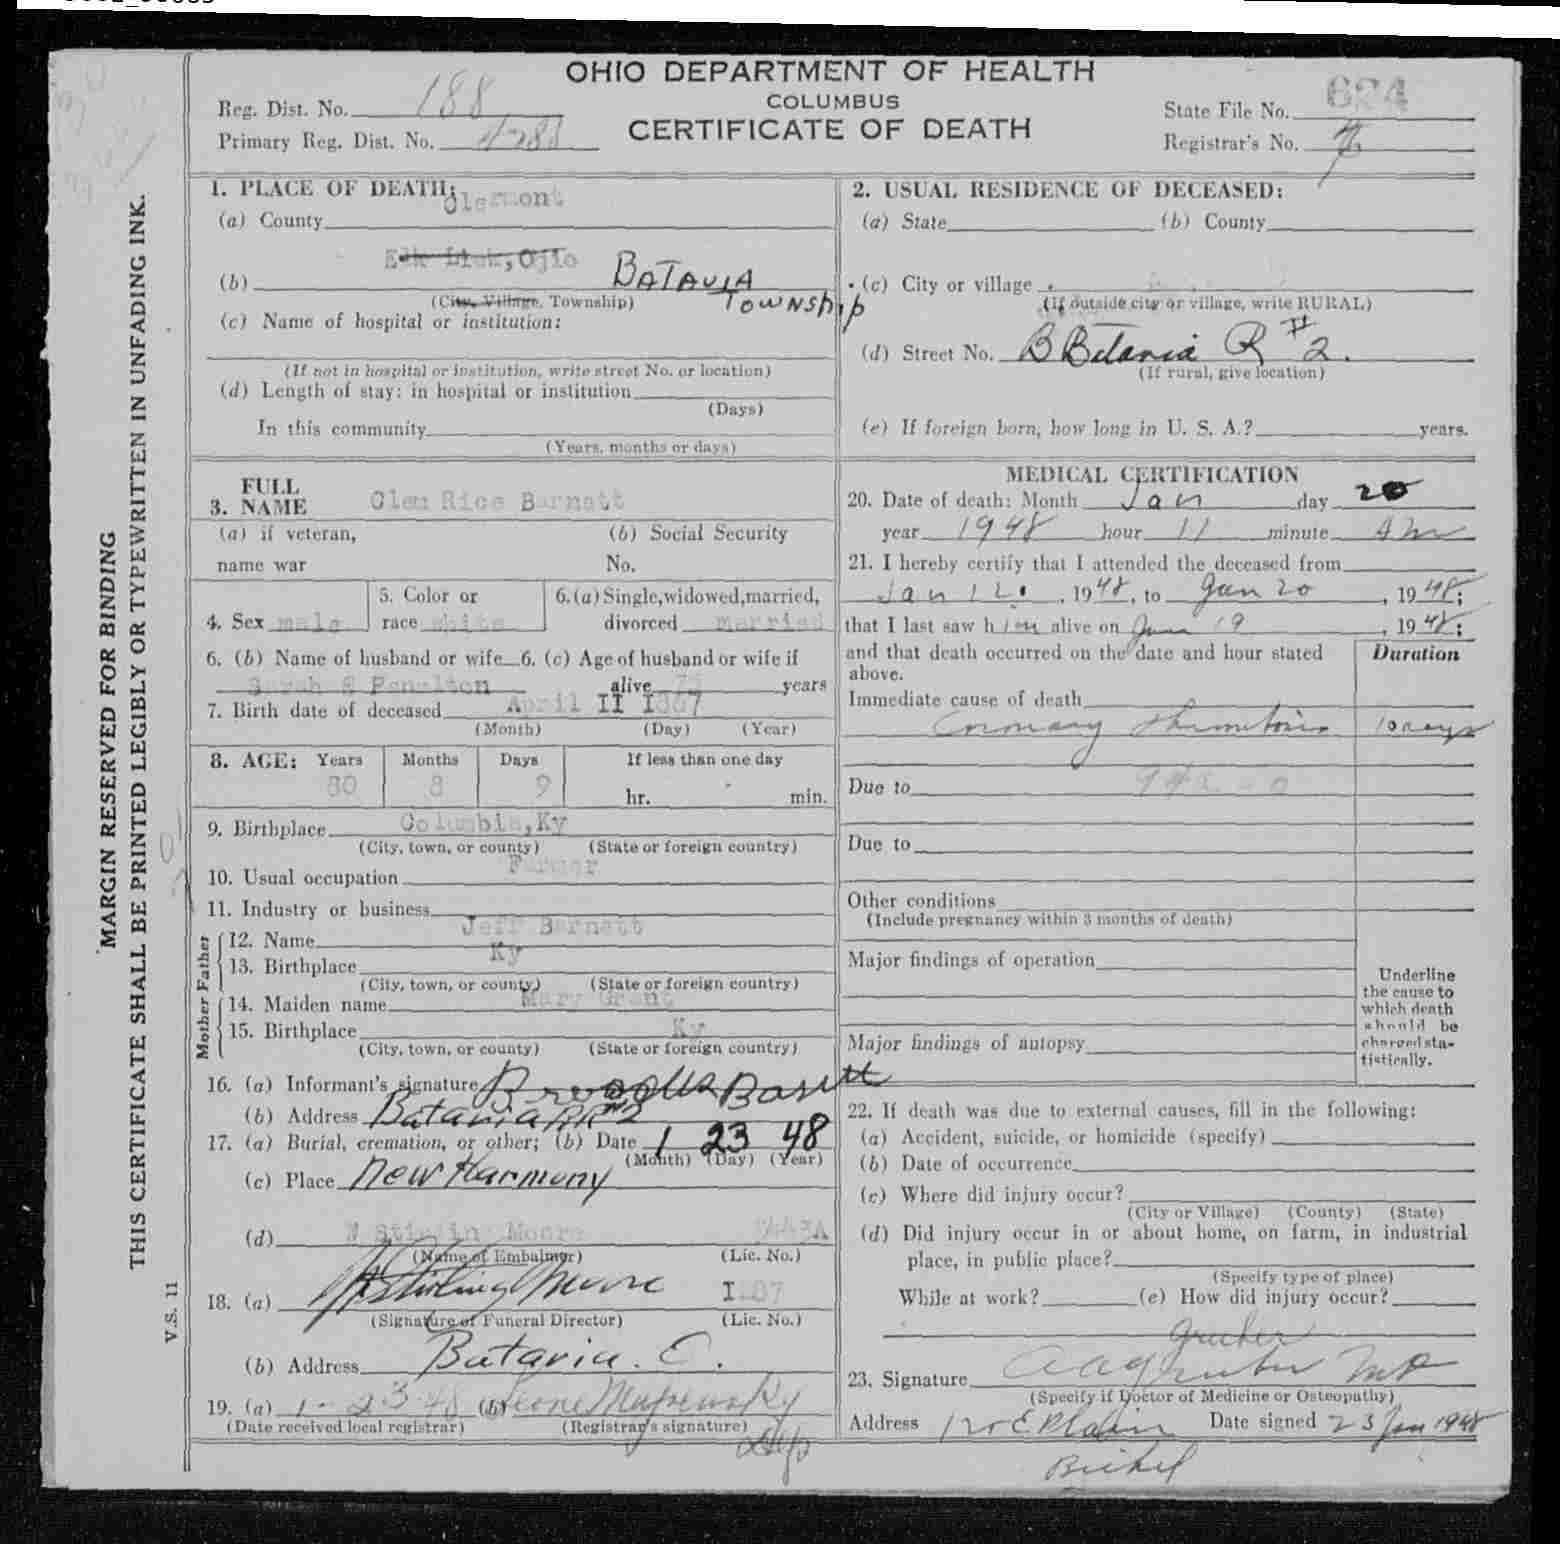 OHIO DEPARTMENT OF HEALTH
COLUMBUS
CERTIFICATE OF DEATH
Reg. Dist. No. 188
Primary Reg. Dist. No.
State File No. 624
Registrar's No.
1. PLACE OF DEATH:
Clermont
(a) County
Elk Lick, Ojio BATAVIA TOWNSHip
(b)
(City, Village, Township)
(c) Name of hospital or institution:
(If not in hospital or institution, write street No. or location)
(d) Length of stay: in hospital or institution
(Days)
In this community
(Years, months or days)
2. USUAL RESIDENCE OF DECEASED:
(a) State (b) County
(c) City or village
(If outside city or village, write RURAL)
(d) Street No. B Batavia R #2.
(If rural, give location)
(e) If foreign born, how long in U. S. A.? years.
3. FULL NAME Glen Rice Barnett
(a) if veteran, (b) Social Security
name war No.
4. Sex male 5. Color or race white 6. (a) Single, widowed, married, divorced married
6. (b) Name of husband or wife 6. (c) Age of husband or wife if
Sarah E Penelton alive years
7. Birth date of deceased April II I867
(Month) (Day) (Year)
8. AGE: Years Months Days If less than one day
80 8 9 hr. min.
9. Birthplace Columbia,Ky
(City, town, or county) (State or foreign country)
10. Usual occupation Farmer
11. Industry or business
Father
12. Name Jeff Barnett
13. Birthplace Ky
(City, town, or county) (State or foreign country)
Mother
14. Maiden name Mary Grant
15. Birthplace Ky
(City, town, or county) (State or foreign country)
16. (a) Informant's signature
(b) Address Batavia RR#2
17. (a) Burial, cremation, or other; (b) Date 1 23 48
(Month) (Day) (Year)
(c) Place New Harmony
(d) W Stirling Moore
(Name of Embalmer) (Lic. No.)
18. (a) W Stirling Moore
(Signature of Funeral Director) (Lic. No.)
(b) Address Batavia. O.
19. (a) 1-23-48 (b)
(Date received local registrar) (Registrar's signature)
Dep
MEDICAL CERTIFICATION
20. Date of death: Month Jan day 20
year 1948 hour 11 minute AM
21. I hereby certify that I attended the deceased from
Jan 12, 1948, to Jan 20, 1948;
that I last saw him alive on Jan 19, 1948;
and that death occurred on the date and hour stated above.
Duration
Immediate cause of death
Coronary Thrombosis 10 days
Due to
Due to
Other conditions
(Include pregnancy within 3 months of death)
Major findings of operation
Major findings of autopsy
Underline
the cause to
which death
should be
charged sta-
tistically.
22. If death was due to external causes, fill in the following:
(a) Accident, suicide, or homicide (specify)
(b) Date of occurrence
(c) Where did injury occur?
(City or Village) (County) (State)
(d) Did injury occur in or about home, on farm, in industrial
place, in public place?
(Specify type of place)
While at work? (e) How did injury occur?
Gruber
23. Signature A A Gruber MD
(Specify if Doctor of Medicine or Osteopathy)
Address E Plain Date signed 23 Jan 1948
MARGIN RESERVED FOR BINDING
THIS CERTIFICATE SHALL BE PRINTED LEGIBLY OR TYPEWRITTEN IN UNFADING INK.
V.S. 11